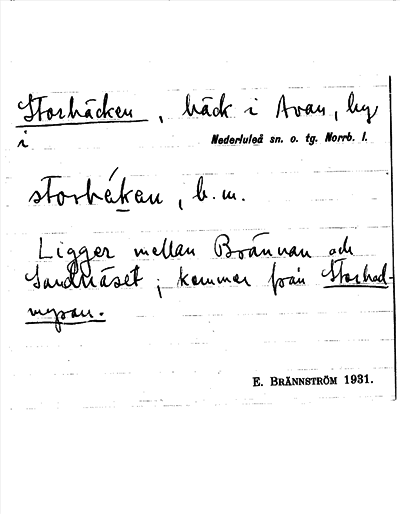 Storbäcken, bäck i Avan, by
i Nederluleå sn. o. tg. Norrb. l.
storbékən, b. m.
Ligger mellan Brännan och
Sandnäset; kommer från Storbad-
myran.
E. BRÄNNSTRÖM 1931.